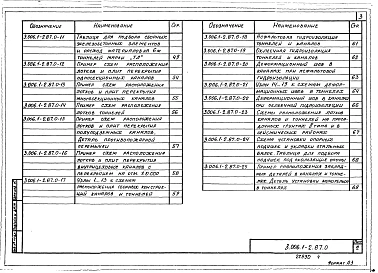 3
Обозначение Наименование Стр.
3.006.1-2.87.0-11 Таблица для подбора сборных
железобетонных элементов
и расход материалов 6м
тоннелей марки "ТД" 49
3.006.1-2.87.0-12 Пример схем расположения
лотков и плит перекрытия
односекционных каналов 54
3.006.1-2.87.0-13 Пример схем расположения
лотков и плит перекрытия
двухсекционных каналов 55
3.006.1-2.87.0-14 Пример схем расположения
лотков тоннелей 56
3.006.1-2.87.0-15 Пример схем расположения
лотков и плит перекрытия
полуподземных каналов.
Деталь противопожарной
перемычки 57
3.006.1-2.87.0-16 Пример схем расположения
лотков и плит перекрытия
каналов с
перекрытием на отм. 0.000 58
3.006.1-2.87.0-17 Узлы 1...13 к схемам
расположения сборных конструк-
ций каналов и тоннелей 59
Обозначение Наименование Стр.
3.006.1-2.87.0-18 гидроизоляция
тоннелей и каналов 61
3.006.1-2.87.0-19 Оклеечная гидроизоляция
тоннелей и каналов 62
3.006.1-2.87.0-20 Деформационный шов в
каналах при
гидроизоляции 63
3.006.1-2.87.0-21 Узлы 14...19 к схемам дефор-
мационных швов в тоннелях 64
3.006.1-2.87.0-22 Деформационный шов в каналах
при оклеечной гидроизоляции 66
3.006.1-2.87.0-23 Схемы расположения лотков
каналов и тоннелей на проса-
дочных грунтах типа и в
сейсмических районах 67
3.006.1-2.87.0-24 Схемы установки опорных
подушек и укладки стальных
балок. Таблица для подбора
подушек под скользящие опоры 68
3.006.1-2.87.0-25 Пример расположения заклад-
ных деталей в каналах и тонне-
лях. Деталь установки
в тоннелях 69
3.006.1-2.87.0
Лист
2
22930 4
Формат А3